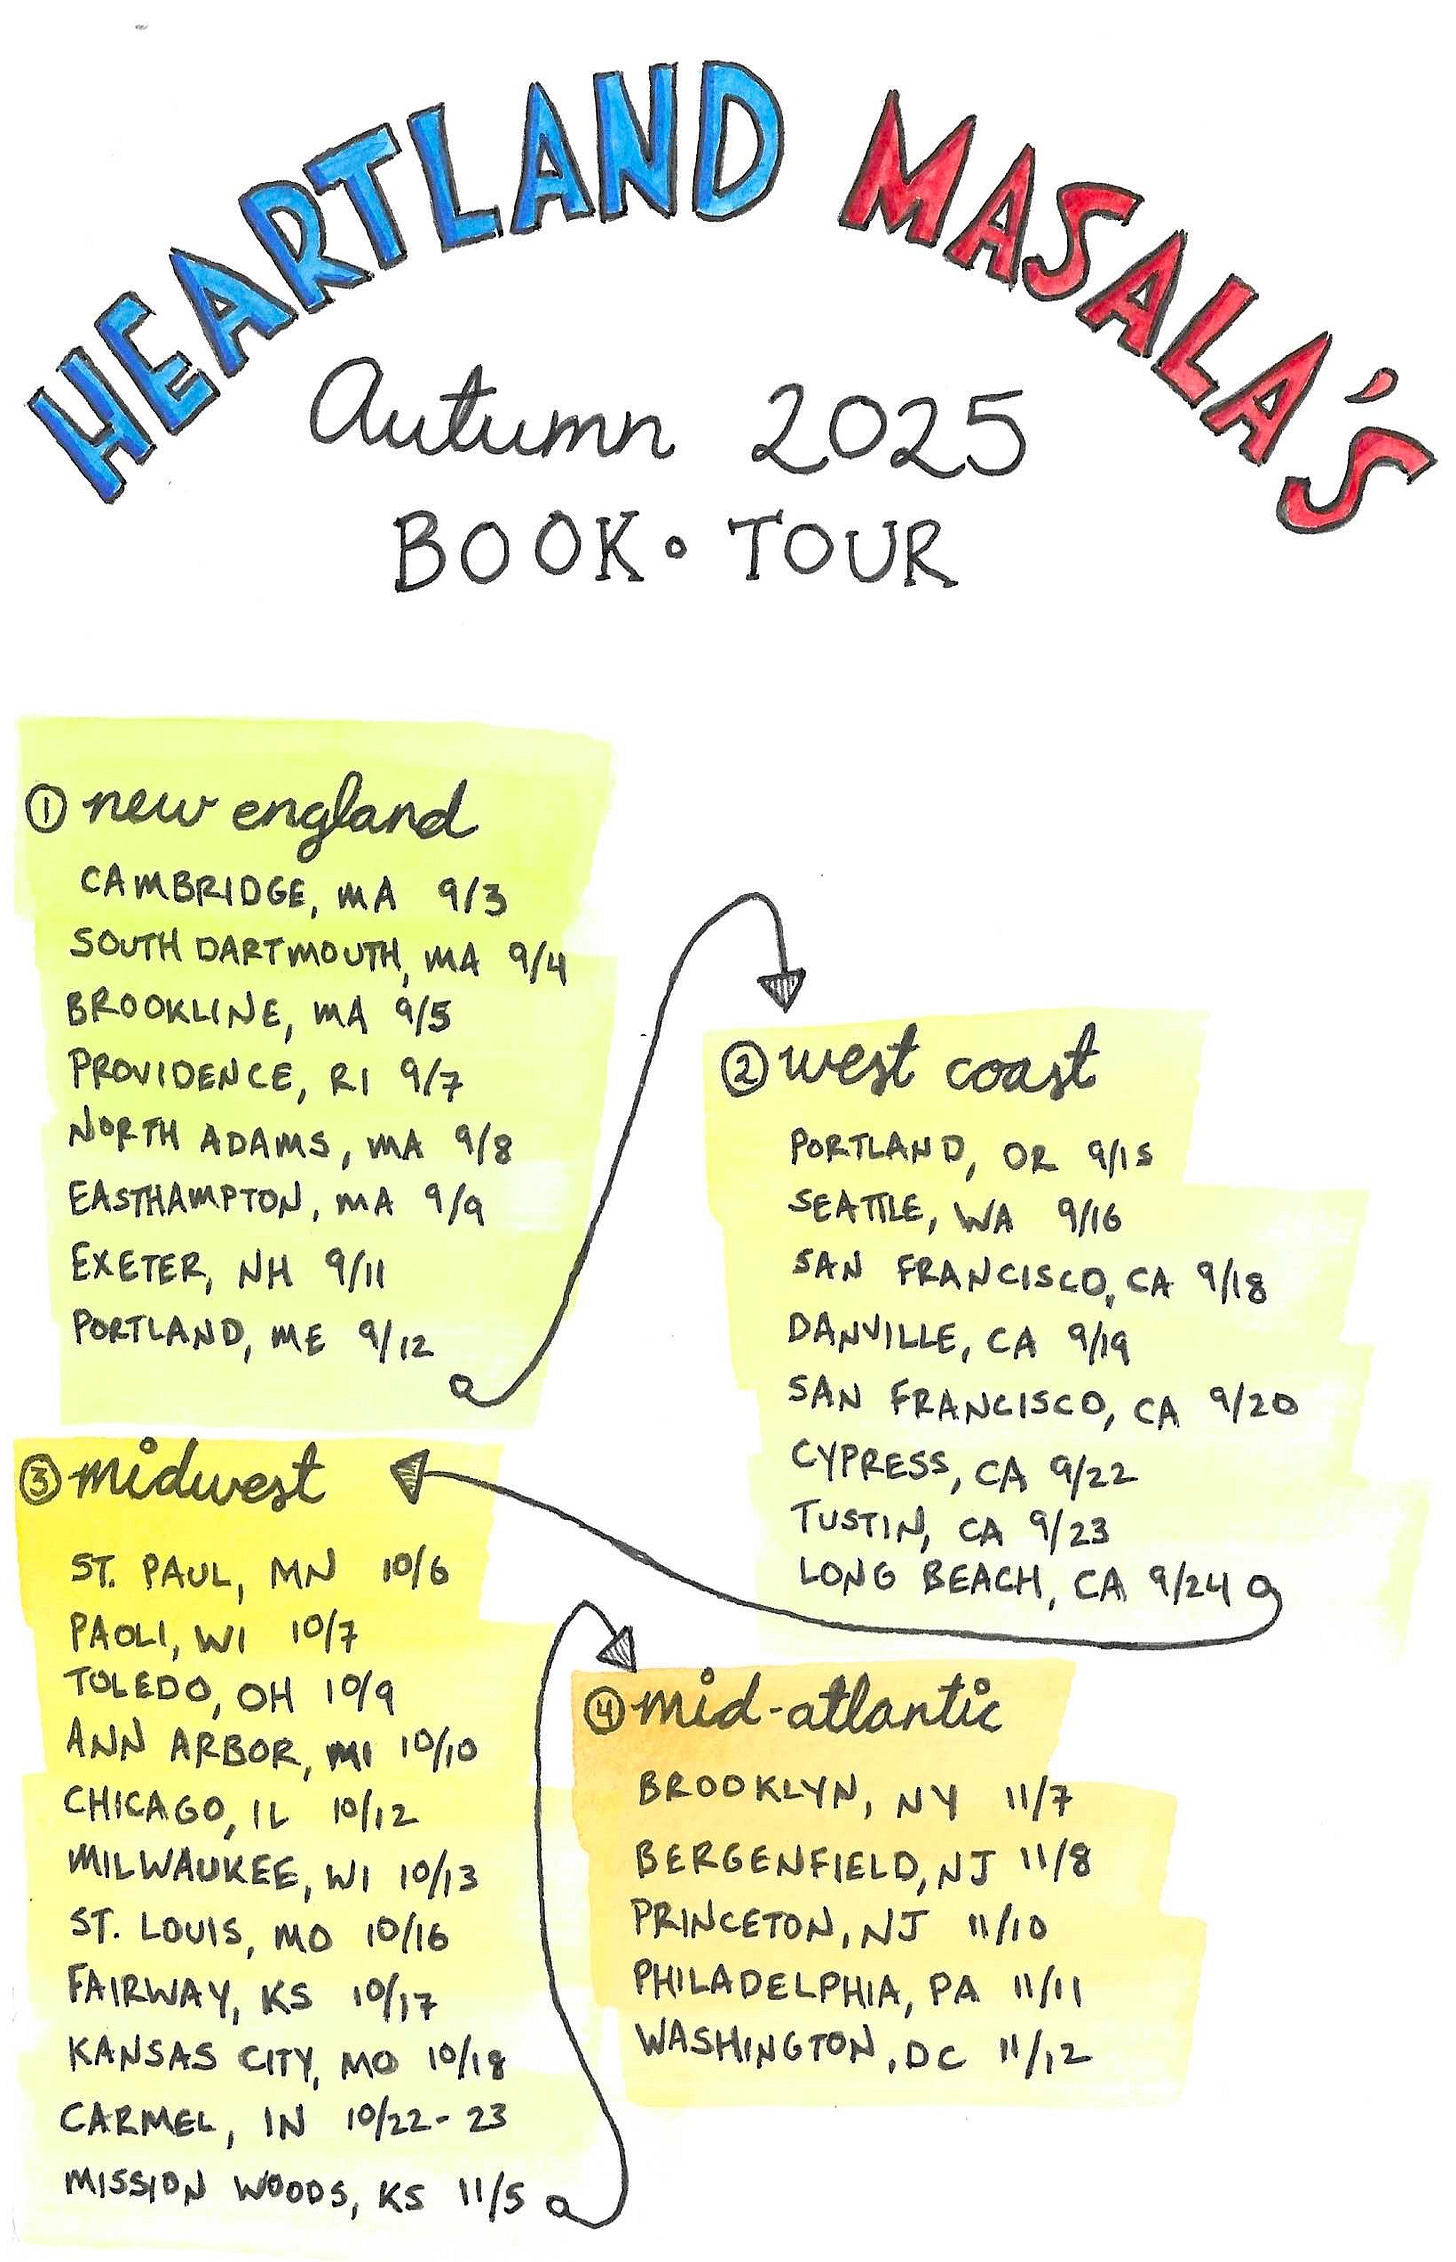 HEARTLAND MASALA'S
Autumn 2025
BOOK • TOUR
① new england
CAMBRIDGE, MA 9/3
SOUTH DARTMOUTH, MA 9/4
BROOKLINE, MA 9/5
PROVIDENCE, RI 9/7
NORTH ADAMS, MA 9/8
EASTHAMPTON, MA 9/9
EXETER, NH 9/11
PORTLAND, ME 9/12
② west coast
PORTLAND, OR 9/15
SEATTLE, WA 9/16
SAN FRANCISCO, CA 9/18
DANVILLE, CA 9/19
SAN FRANCISCO, CA 9/20
CYPRESS, CA 9/22
TUSTIN, CA 9/23
LONG BEACH, CA 9/24
③ midwest
ST. PAUL, MN 10/6
PAOLI, WI 10/7
TOLEDO, OH 10/9
ANN ARBOR, MI 10/10
CHICAGO, IL 10/12
MILWAUKEE, WI 10/13
ST. LOUIS, MO 10/16
FAIRWAY, KS 10/17
KANSAS CITY, MO 10/18
CARMEL, IN 10/22-23
MISSION WOODS, KS 11/5
④ mid-atlantic
BROOKLYN, NY 11/7
BERGENFIELD, NJ 11/8
PRINCETON, NJ 11/10
PHILADELPHIA, PA 11/11
WASHINGTON, DC 11/12